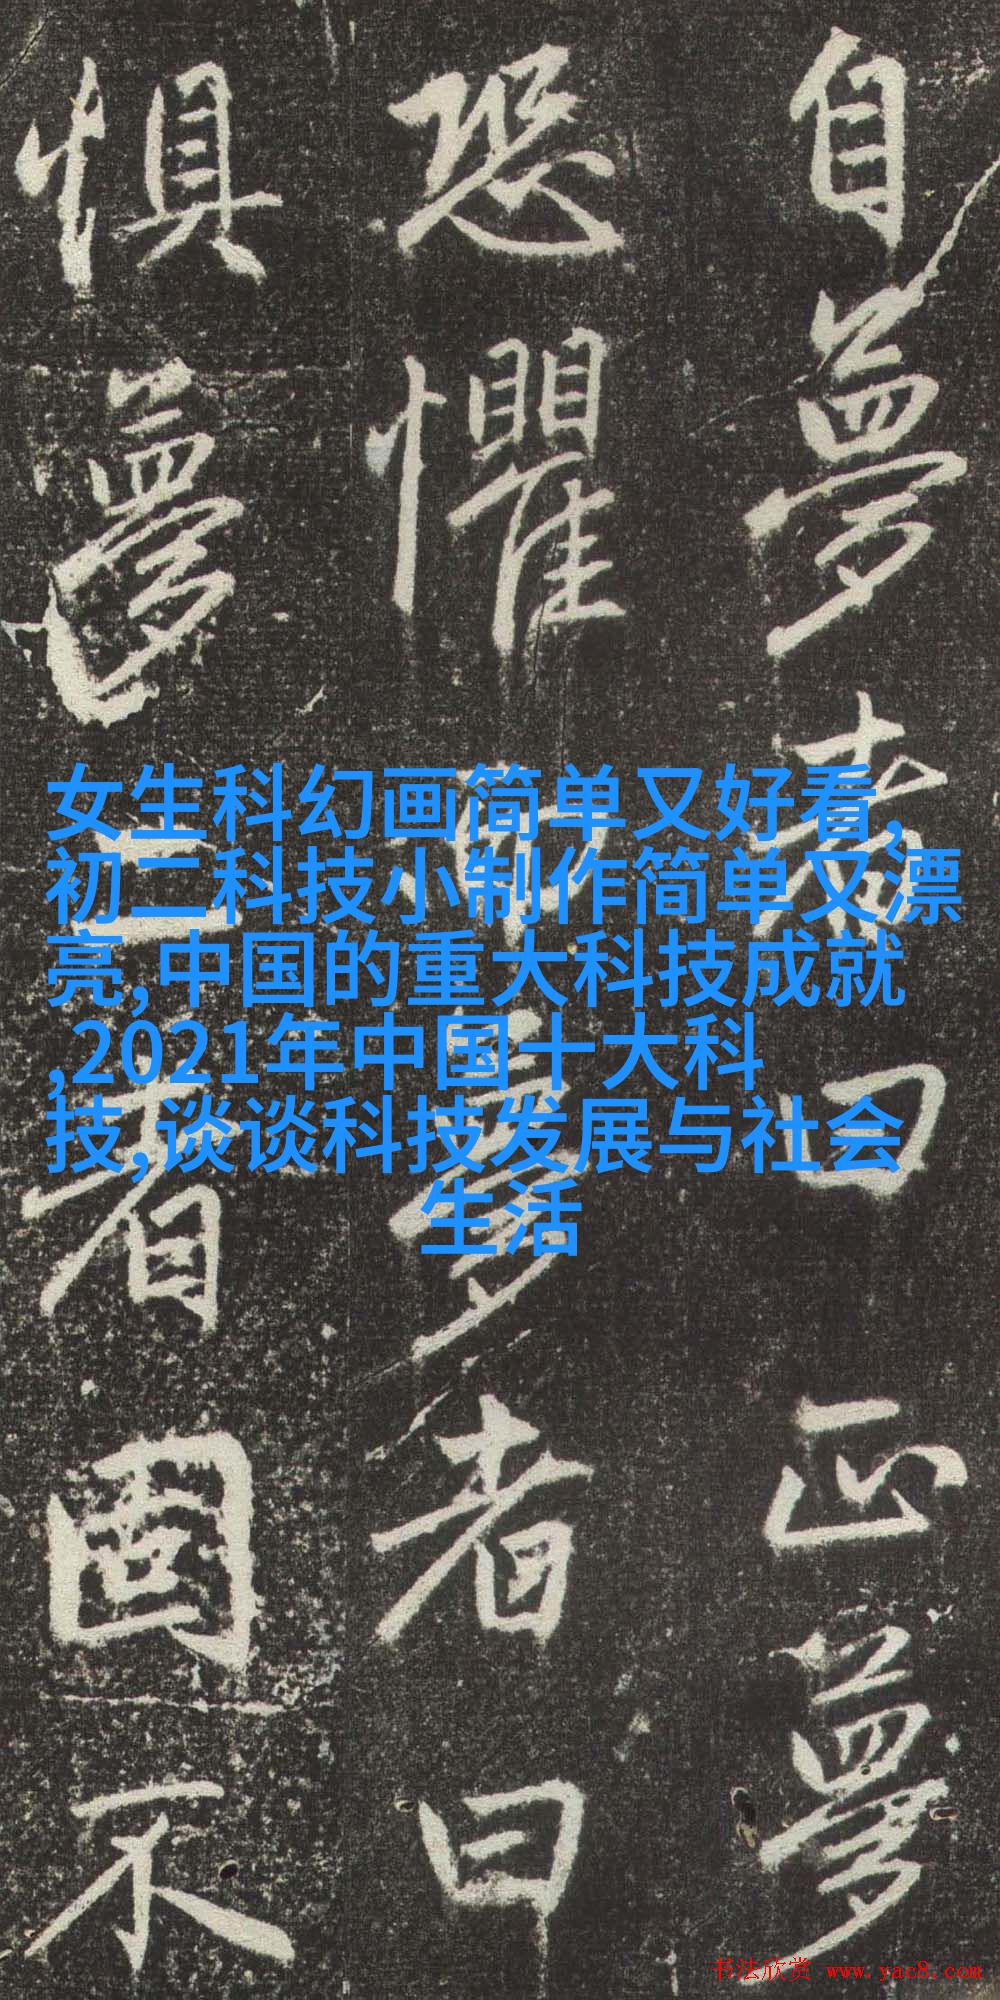 自夢曰正夢
恐懼而夢者曰
惧夢者固不
女生科幻画简单又好看,
初二科技小制作简单又漂
亮,中国的重大科技成就
,2021年中国十大科
技,谈谈科技发展与社会
生活
书法欣赏 www.yac8.com